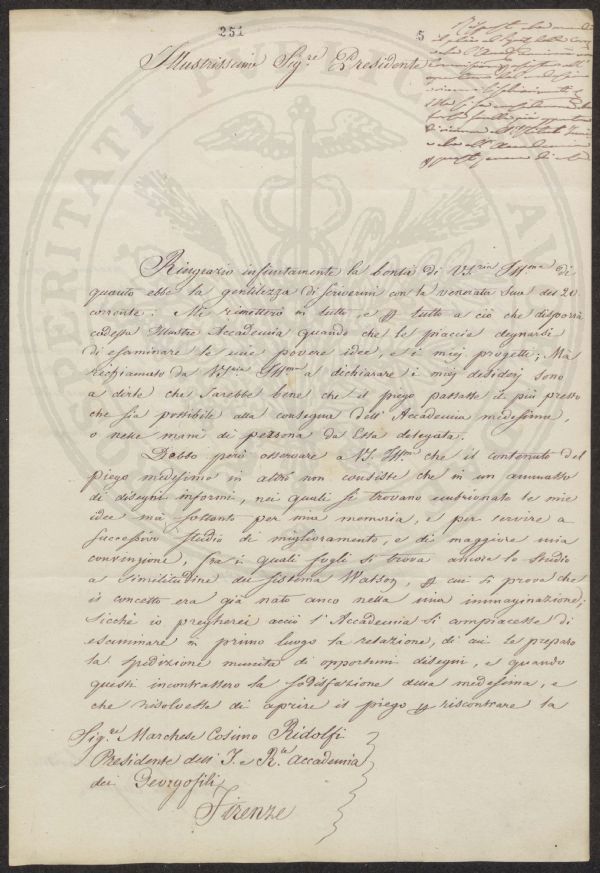 251
5
Illustrissimo Sig.re Presidente
Ringrazio infinitamente la bontà di V.S.ria Ill.ma di
quanto ebbe la gentilezza di scrivermi con la venerata sua del 20
corrente: Mi rimetterò in tutto, e p tutto a ciò che disporrà
codessa Illustre Accademia quando che le piaccia degnarsi
di esaminare le mie povere idee, e i miej progetti; Ma
richiamato da V.S.ria Ill.ma a dichiarare i miej desiderj sono
a dirle che sarebbe bene che il piego passasse il più presto
che sia possibile alla consegna dell'Accademia medesima,
o nelle mani di persona da Essa delegata.
Debbo però osservare a V.S. Ill.ma che il contenuto del
piego medesimo in altro non consiste che in un ammasso
di disegni informi, nei quali si trovano embrionate le mie
idee mà soltanto per mia memoria, e per servire a
successivo studio di miglioramento, e di maggiore mia
convinzione, fra i quali fogli si trova ancora lo studio
a similitudine del sistema Watson, p cui si prova che
il concetto era già nato anco nella mia immaginazione;
sicchè io pregherei acciò l'Accademia si compiacesse di
esaminare in primo luogo la relazione, di cui le preparo
la spedizione munita di opportuni disegni, e quando
questi incontrassero la sodisfazione della medesima, e
che risolvesse di aprire il piego p riscontrare la
Sig.re Marchese Cosimo Ridolfi
Presidente dell'I. e R.le Accademia
dei Georgofili
Firenze